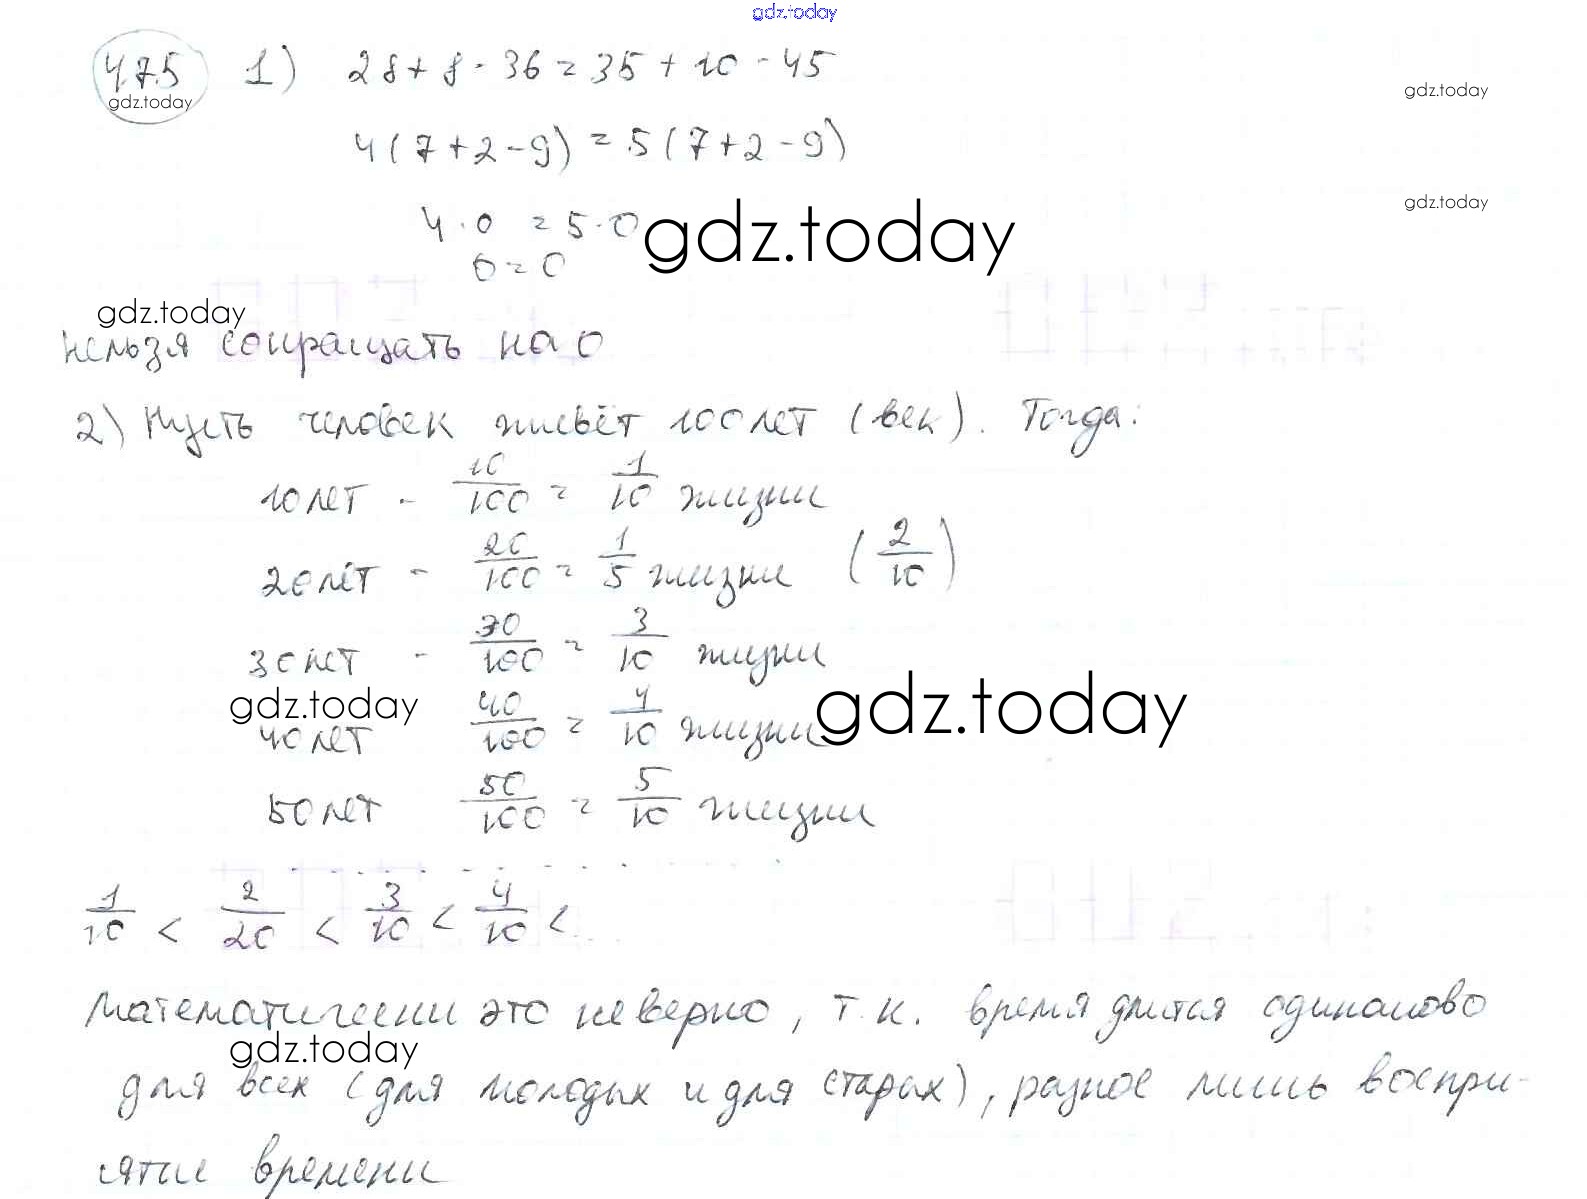 gdz.today
475 1) 28 + 8 - 36 = 35 + 10 - 45
gdz.today
gdz.today
4(7 + 2 - 9) = 5(7 + 2 - 9)
4 · 0 = 5 · 0
gdz.today
gdz.today
0 = 0
gdz.today
нельзя сокращать на 0
2) Пусть человек живёт 100 лет (век). Тогда:
10 лет - 10/100 = 1/10 жизни
20 лет - 20/100 = 1/5 жизни (2/10)
30 лет - 30/100 = 3/10 жизни
gdz.today
gdz.today
40 лет 40/100 = 4/10 жизни
50 лет 50/100 = 5/10 жизни
1/10 < 2/20 < 3/10 < 4/10 < ...
Математически это неверно, т.к. время длится одинаково
gdz.today
для всех (для молодых и для старых), разное лишь воспри-
ятие времени